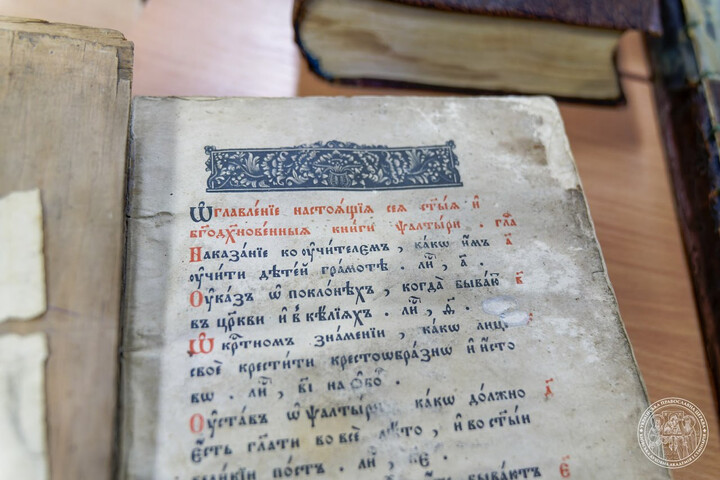 Ѡ҆главле́нїе настоѧ́щїѧ сеѧ̀ ст҃ы́ѧ и҆
бг҃одх҃нове́нныѧ кни́ги ѱалты́ри . гла
Наказа́нїе ко ᲂу҆чи́телемъ , ка́кѡ и҆́мъ а҃
ᲂу҆чи́ти дѣте́й гра́мотѣ . ли́ , а҃ .
Оу҆ка́зъ ѡ҆ покло́нѣхъ , когда̀ быва́ю в҃
въ цр҃кви и҆ в ке́лїѧхъ . ли́ , д҃ .
Ѡ҆ крⷭ҇тномъ зна́менїи , ка́кѡ лицѐ
своѐ крести́ти крестоѡбра́знѡ и҆ и҆́сто
вѡ . ли́ , в҃і на ѻ҆бо́ .
Оу҆ста́въ ѡ҆ ѱалты́ри , ка́кѡ до́лжно д҃
є҆́сть гл҃а́ти во всѐ лѣ́то , и҆ во ст҃ы́й
вели́кїй по́стъ . ли́ , є҃ .
быва́ютъ є҃